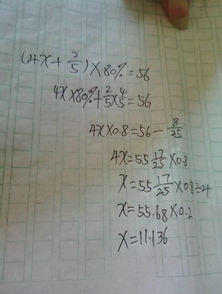 (4x + 2/5) × 80% = 56
4x × 80% + 2/5 × 4/5 = 56
4x × 0.8 = 56 − 8/25
4x = 55 17/25 × 0.8
x = 55 17/25 × 0.8 ÷ 4
x = 55.68 × 0.2
x = 11.136